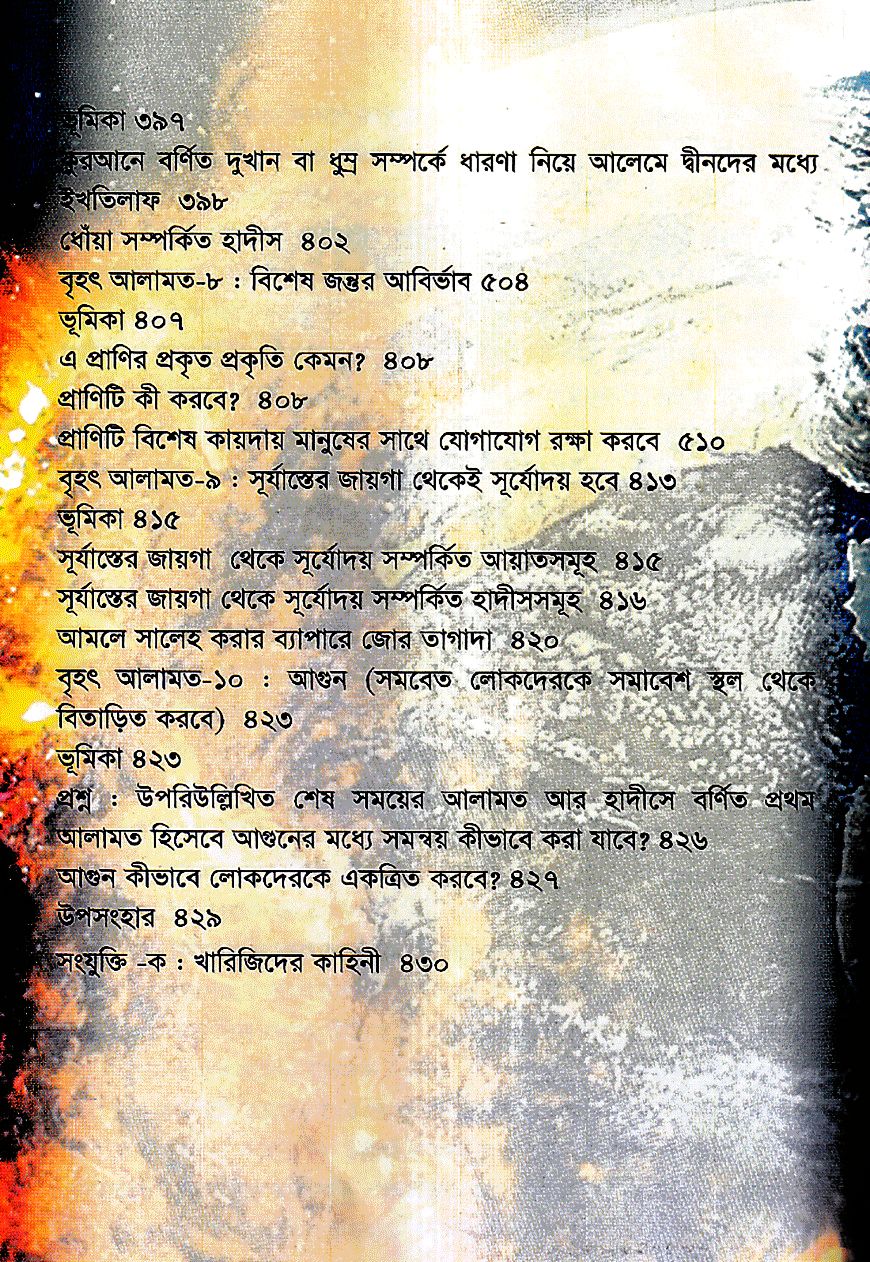 ভূমিকা ৩৯৭
কুরআনে বর্ণিত দুখান বা ধুম্র সম্পর্কে ধারণা নিয়ে আলেমে দ্বীনদের মধ্যে
ইখতিলাফ ৩৯৮
ধোঁয়া সম্পর্কিত হাদীস ৪০২
বৃহৎ আলামত-৮ : বিশেষ জন্তুর আবির্ভাব ৫০৪
ভূমিকা ৪০৭
এ প্রাণির প্রকৃত প্রকৃতি কেমন? ৪০৮
প্রাণিটি কী করবে? ৪০৮
প্রাণিটি বিশেষ কায়দায় মানুষের সাথে যোগাযোগ রক্ষা করবে ৫১০
বৃহৎ আলামত-৯ : সূর্যাস্তের জায়গা থেকেই সূর্যোদয় হবে ৪১৩
ভূমিকা ৪১৫
সূর্যাস্তের জায়গা থেকে সূর্যোদয় সম্পর্কিত আয়াতসমূহ ৪১৫
সূর্যাস্তের জায়গা থেকে সূর্যোদয় সম্পর্কিত হাদীসসমূহ ৪১৬
আমলে সালেহ করার ব্যাপারে জোর তাগাদা ৪২০
বৃহৎ আলামত-১০ : আগুন (সমবেত লোকদেরকে সমাবেশ স্থল থেকে
বিতাড়িত করবে) ৪২৩
ভূমিকা ৪২৩
প্রশ্ন : উপরিউল্লিখিত শেষ সময়ের আলামত আর হাদীসে বর্ণিত প্রথম
আলামত হিসেবে আগুনের মধ্যে সমন্বয় কীভাবে করা যাবে? ৪২৬
আগুন কীভাবে লোকদেরকে একত্রিত করবে? ৪২৭
উপসংহার ৪২৯
সংযুক্তি -ক : খারিজিদের কাহিনী ৪৩০